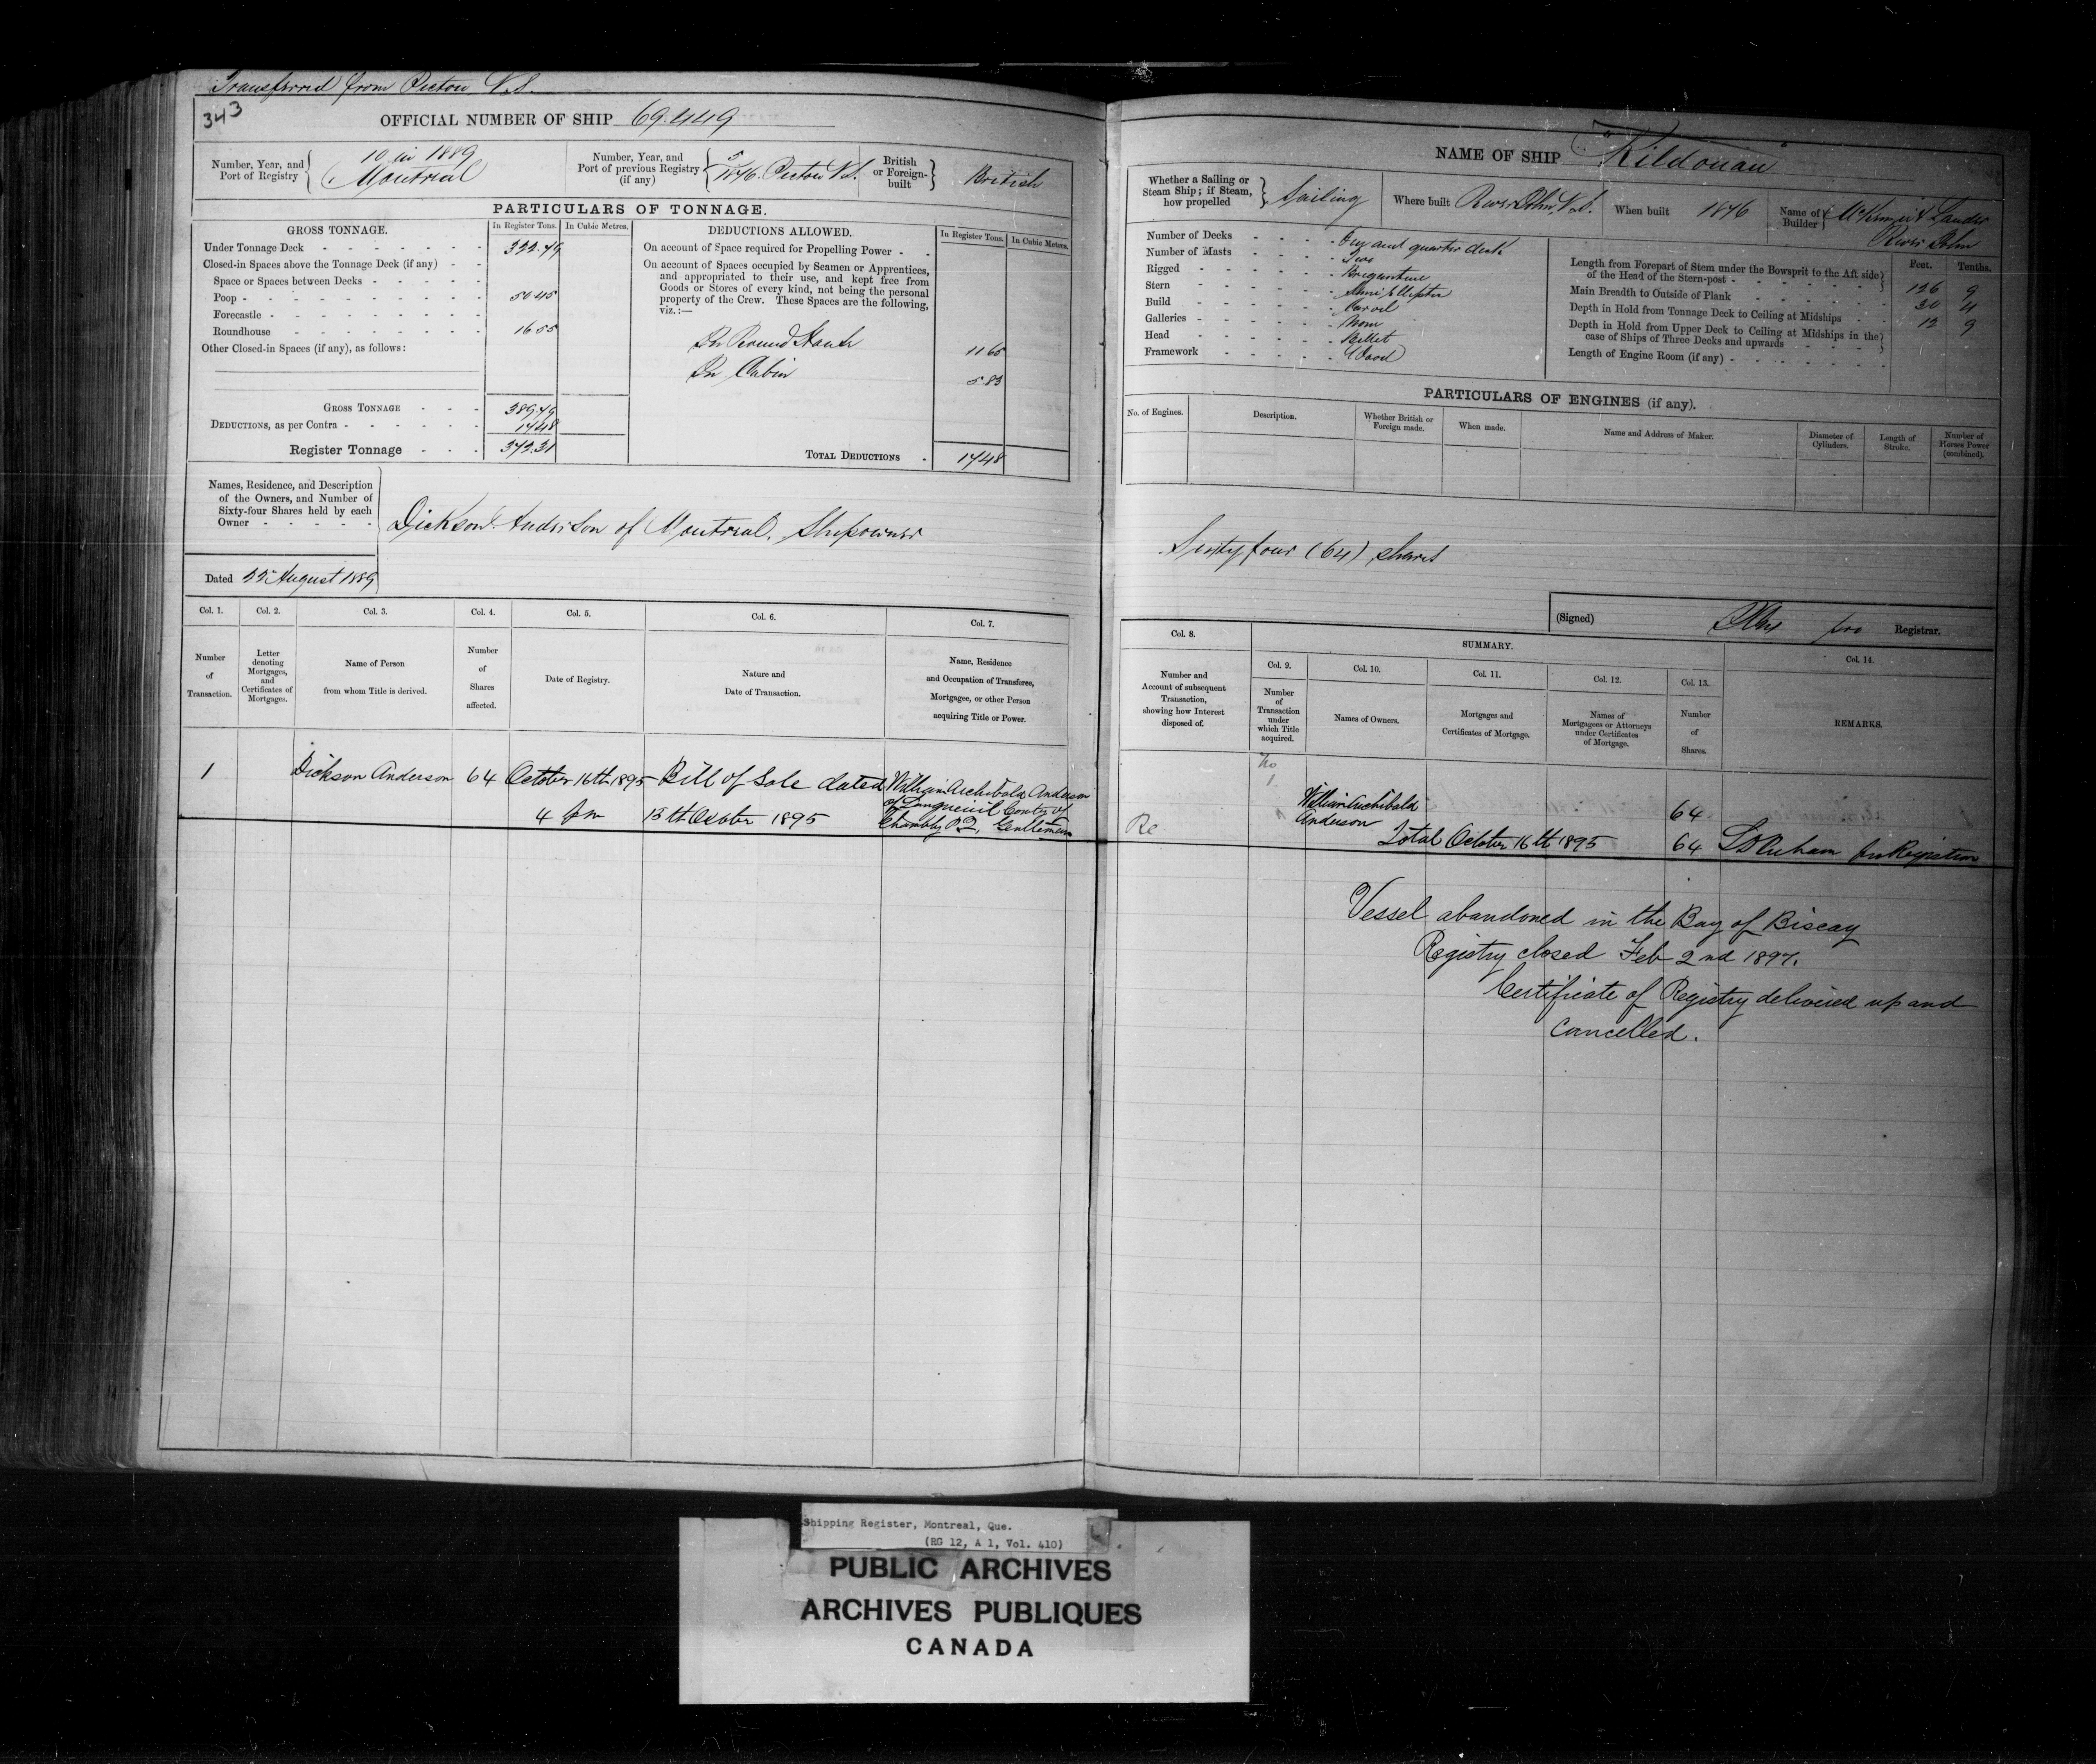 Transferred from Pictou N.S.
343
OFFICIAL NUMBER OF SHIP 69.449
Number, Year, and Port of Registry
10 in 1889
Montreal
Number, Year, and Port of previous Registry (if any)
5
1876. Pictou N.S.
British or Foreign-built
British
PARTICULARS OF TONNAGE.
GROSS TONNAGE.
In Register Tons.
In Cubic Metres.
Under Tonnage Deck 322.79
Closed-in Spaces above the Tonnage Deck (if any)
Space or Spaces between Decks
Poop 50.45
Forecastle
Roundhouse 16.55
Other Closed-in Spaces (if any), as follows:
GROSS TONNAGE 389.79
DEDUCTIONS, as per Contra 17.48
Register Tonnage 372.31
DEDUCTIONS ALLOWED.
In Register Tons.
In Cubic Metres.
On account of Space required for Propelling Power
On account of Spaces occupied by Seamen or Apprentices,
and appropriated to their use, and kept free from
Goods or Stores of every kind, not being the personal
property of the Crew. These Spaces are the following,
viz.:—
In Round House 11.65
In Cabin 5.83
TOTAL DEDUCTIONS 17.48
Names, Residence, and Description
of the Owners, and Number of
Sixty-four Shares held by each
Owner
Dickson Anderson of Montreal, Shipowner
Dated 22nd August 1889
Col. 1.
Number of Transaction.
Col. 2.
Letter denoting Mortgages, and Certificates of Mortgages.
Col. 3.
Name of Person from whom Title is derived.
Col. 4.
Number of Shares affected.
Col. 5.
Date of Registry.
Col. 6.
Nature and Date of Transaction.
Col. 7.
Name, Residence and Occupation of Transferee, Mortgagee, or other Person acquiring Title or Power.
1 Dickson Anderson 64 October 16th 1895 Bill of Sale dated William Archibald Anderson
of Longueuil County of
4 pm 15th October 1895 Chambly P.Q. Gentleman
NAME OF SHIP "Kildonan"
Whether a Sailing or Steam Ship; if Steam, how propelled
Sailing
Where built River John, N.S.
When built 1876
Name of Builder
McKenzie & Lauder
River John
Number of Decks One and quarter deck
Number of Masts Two
Rigged Brigantine
Stern Semi Elliptic
Build Carvel
Galleries None
Head Billet
Framework Wood
Feet. Tenths.
Length from Forepart of Stem under the Bowsprit to the Aft side
of the Head of the Stern-post 126 9
Main Breadth to Outside of Plank 30 4
Depth in Hold from Tonnage Deck to Ceiling at Midships 12 9
Depth in Hold from Upper Deck to Ceiling at Midships in the
case of Ships of Three Decks and upwards
Length of Engine Room (if any)
PARTICULARS OF ENGINES (if any).
No. of Engines.
Description.
Whether British or Foreign made.
When made.
Name and Address of Maker.
Diameter of Cylinders.
Length of Stroke.
Number of Horses Power (combined).
Sixty four (64) shares
(Signed) pro Registrar.
Col. 8.
Number and Account of subsequent Transaction, showing how Interest disposed of.
SUMMARY.
Col. 9.
Number of Transaction under which Title acquired.
Col. 10.
Names of Owners.
Col. 11.
Mortgages and Certificates of Mortgage.
Col. 12.
Names of Mortgagees or Attorneys under Certificates of Mortgage.
Col. 13.
Number of Shares.
Col. 14.
REMARKS.
No
1
William Archibald
Anderson 64
Re
Total October 16th 1895 64
Vessel abandoned in the Bay of Biscay
Registry closed Feb 2nd 1897.
Certificate of Registry delivered up and
cancelled.
Shipping Register, Montreal, Que.
(RG 12, A 1, Vol. 410)
PUBLIC ARCHIVES
ARCHIVES PUBLIQUES
CANADA